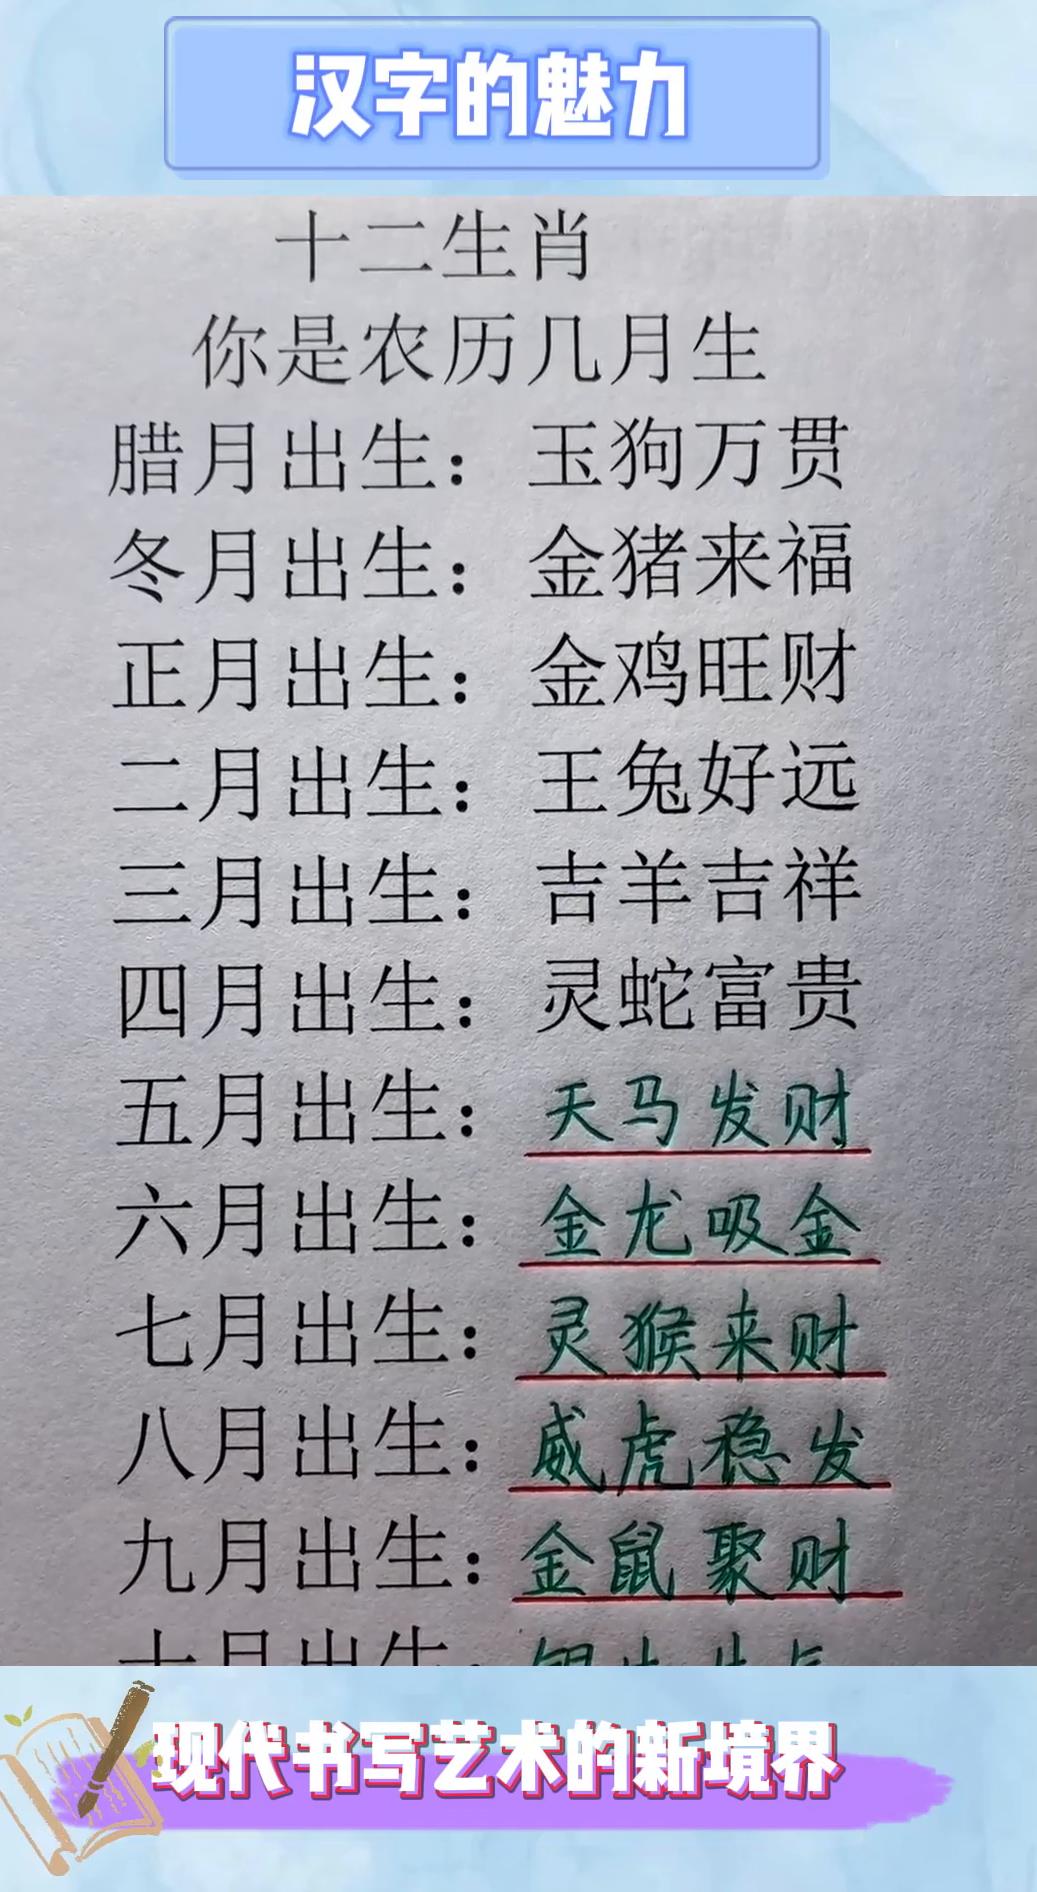 汉字的魅力
十二生肖
你是农历几月生
腊月出生：玉狗万贯
冬月出生：金猪来福
正月出生：金鸡旺财
二月出生：王兔好远
三月出生：吉羊吉祥
四月出生：灵蛇富贵
五月出生：天马发财
六月出生：金龙吸金
七月出生：灵猴来财
八月出生：威虎稳发
九月出生：金鼠聚财
十月出生：
现代书写艺术的新境界